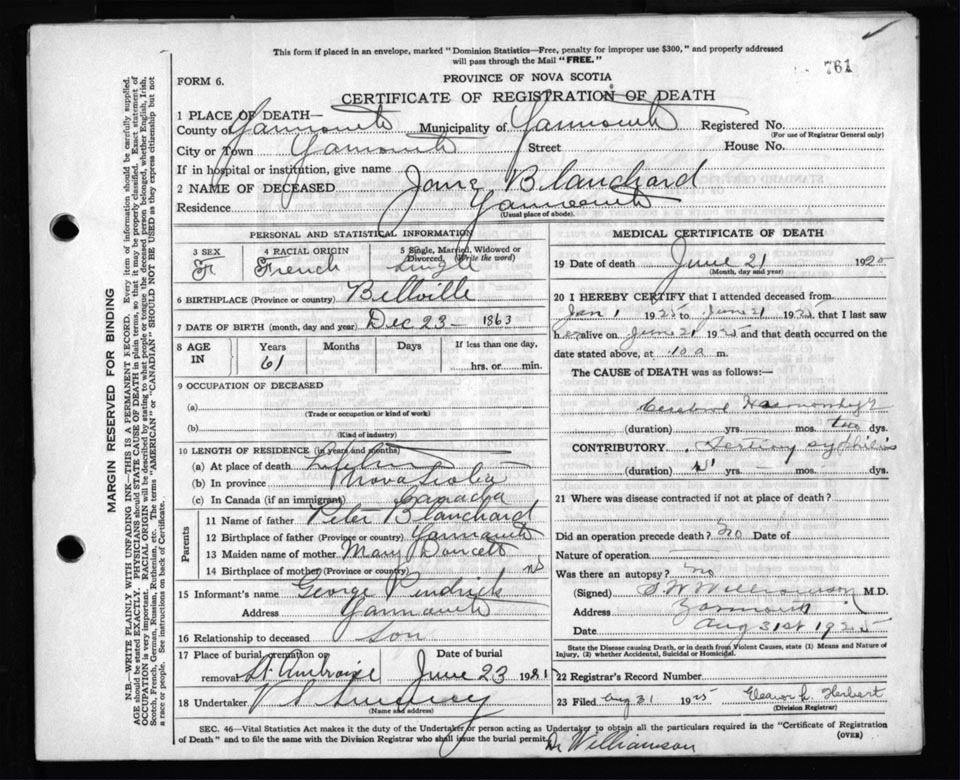 This form if placed in an envelope, marked "Dominion Statistics—Free, penalty for improper use $300," and properly addressed
will pass through the Mail "FREE."
761
FORM 6.
PROVINCE OF NOVA SCOTIA
CERTIFICATE OF REGISTRATION OF DEATH
1 PLACE OF DEATH—
County of Yarmouth Municipality of Yarmouth Registered No.
(For use of Registrar General only)
City or Town Yarmouth Street House No.
If in hospital or institution, give name
2 NAME OF DECEASED Jane Blanchard
Residence Yarmouth
(Usual place of abode).
PERSONAL AND STATISTICAL INFORMATION
3 SEX
F
4 RACIAL ORIGIN
French
5 Single, Married, Widowed or
Divorced. (Write the word)
Single
6 BIRTHPLACE (Province or country) Bellville
7 DATE OF BIRTH (month, day and year) Dec 23 - 1863
8 AGE IN
Years Months Days If less than one day,
61 hrs. or min.
9 OCCUPATION OF DECEASED
(a)
(Trade or occupation or kind of work)
(b)
(Kind of industry)
10 LENGTH OF RESIDENCE (in years and months)
(a) At place of death
(b) In province Nova Scotia
(c) In Canada (if an immigrant) Canada
Parents
11 Name of father Peter Blanchard
12 Birthplace of father (Province or country) Yarmouth
13 Maiden name of mother Mary Doucett
14 Birthplace of mother (Province or country) NS
15 Informant's name George Pendrick
Address Yarmouth
16 Relationship to deceased son
17 Place of burial, cremation or Date of burial
removal St. Ambroise June 23 192
18 Undertaker
(Name and address)
MEDICAL CERTIFICATE OF DEATH
19 Date of death June 21 192
(Month, day and year)
20 I HEREBY CERTIFY that I attended deceased from
Jan 1 1925 to June 21 1925, that I last saw
her alive on June 21 1925 and that death occurred on the
date stated above, at 10 a m.
The CAUSE of DEATH was as follows:—
Cerebral Haemorrhage
(duration) yrs. mos. two dys.
CONTRIBUTORY Tertiary syphilis
(duration) yrs. mos. dys.
21 Where was disease contracted if not at place of death?
Did an operation precede death? no Date of
Nature of operation
Was there an autopsy? no
(Signed) S. W. Williamson M.D.
Address Yarmouth
Date Aug 31st 1925
State the Disease causing Death, or in death from Violent Causes, state (1) Means and Nature of
Injury, (2) whether Accidental, Suicidal or Homicidal.
22 Registrar's Record Number
23 Filed Aug 31 1925 Eleanor L. Herbert
(Division Registrar)
SEC. 46—Vital Statistics Act makes it the duty of the Undertaker or person acting as Undertaker to obtain all the particulars required in the "Certificate of Registration
of Death" and to file the same with the Division Registrar who shall issue the burial permit. (OVER)
Dr Williamson
MARGIN RESERVED FOR BINDING
N.B.—WRITE PLAINLY WITH UNFADING INK—THIS IS A PERMANENT RECORD. Every item of information should be carefully supplied.
AGE should be stated EXACTLY. PHYSICIANS should STATE CAUSE OF DEATH in plain terms, so that it may be properly classified. Exact statement of
OCCUPATION is very important. RACIAL ORIGIN will be described by stating to what people or tongue the deceased person belonged, whether English, Irish,
Scotch, French, German, Russian, Ruthenian, etc. The terms "AMERICAN" or "CANADIAN" SHOULD NOT BE USED as they express citizenship but not
a race or people. See instructions on back of Certificate.